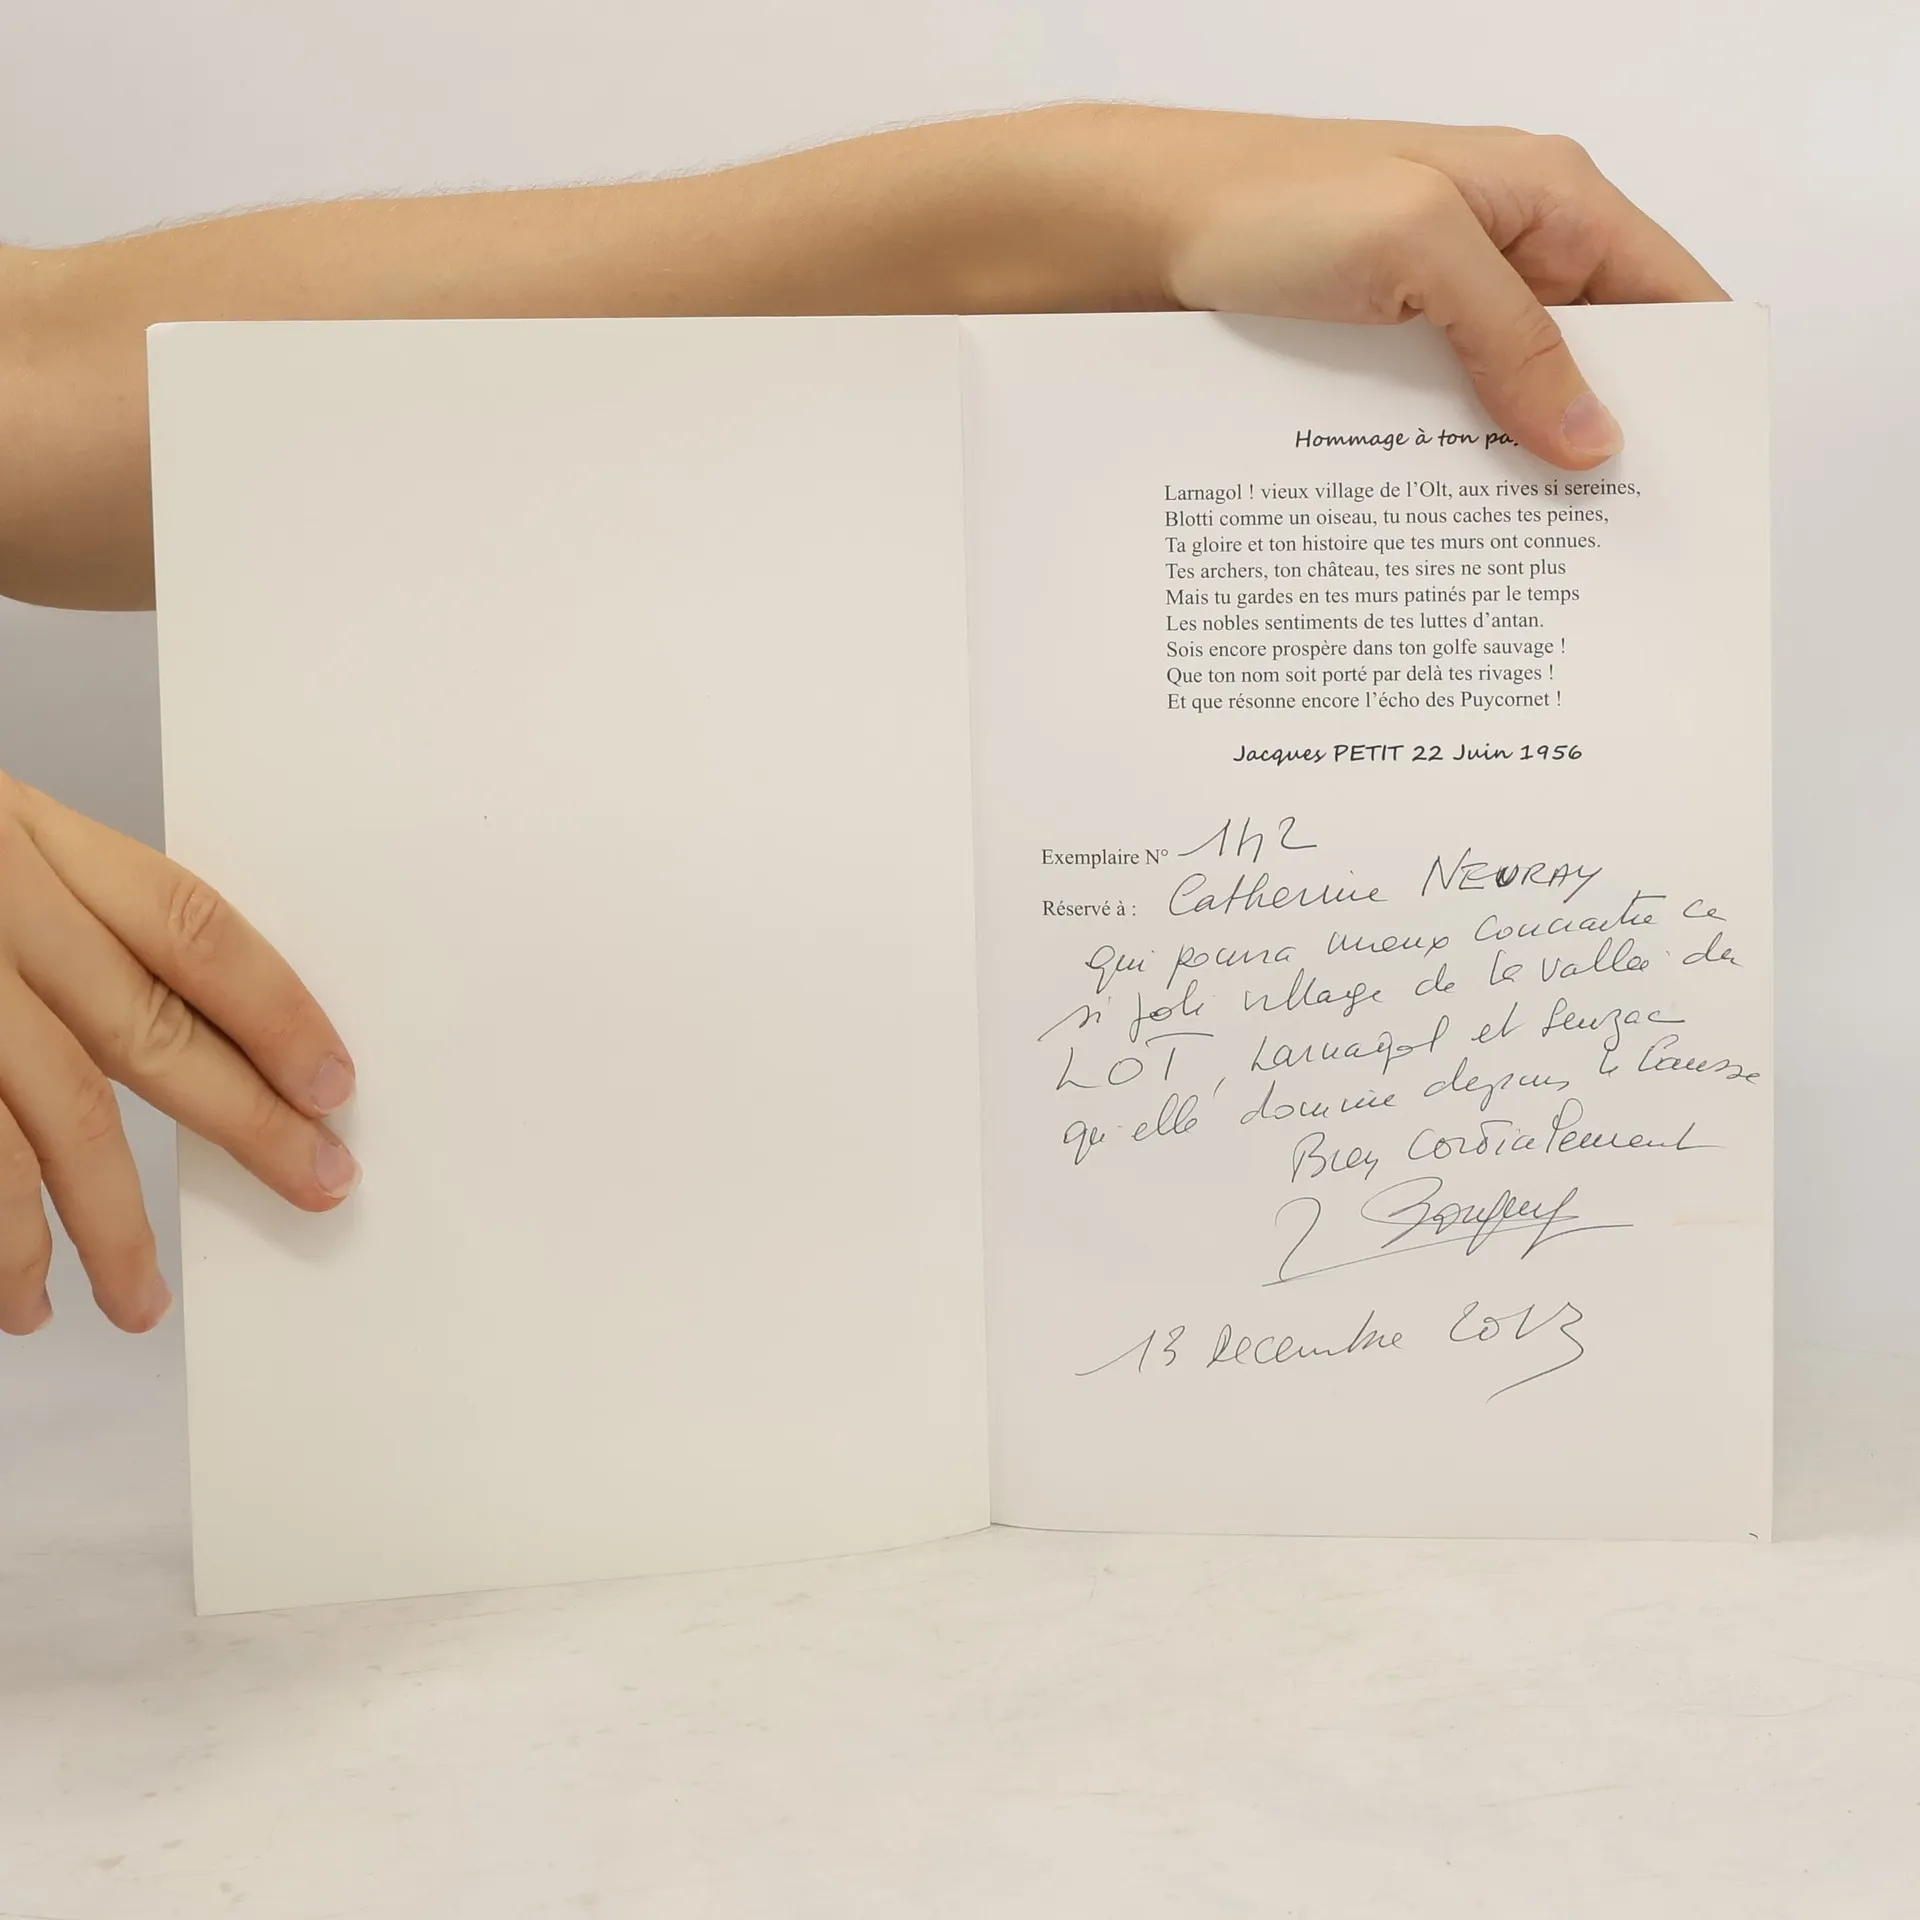 Hommage à ton
Larnagol ! vieux village de l'Olt, aux rives si sereines,
Blotti comme un oiseau, tu nous caches tes peines,
Ta gloire et ton histoire que tes murs ont connues.
Tes archers, ton château, tes sires ne sont plus
Mais tu gardes en tes murs patinés par le temps
Les nobles sentiments de tes luttes d'antan.
Sois encore prospère dans ton golfe sauvage !
Que ton nom soit porté par delà tes rivages !
Et que résonne encore l'écho des Puycornet !
Jacques PETIT 22 Juin 1956
Exemplaire N° 142
Réservé à : Catherine NEURAY
qui pourra mieux connaitre ce
si joli village de la vallée du
LOT, Larnagol et Seuzac
qu'elle domine depuis le Causse
Bien Cordialement
13 Decembre 2013